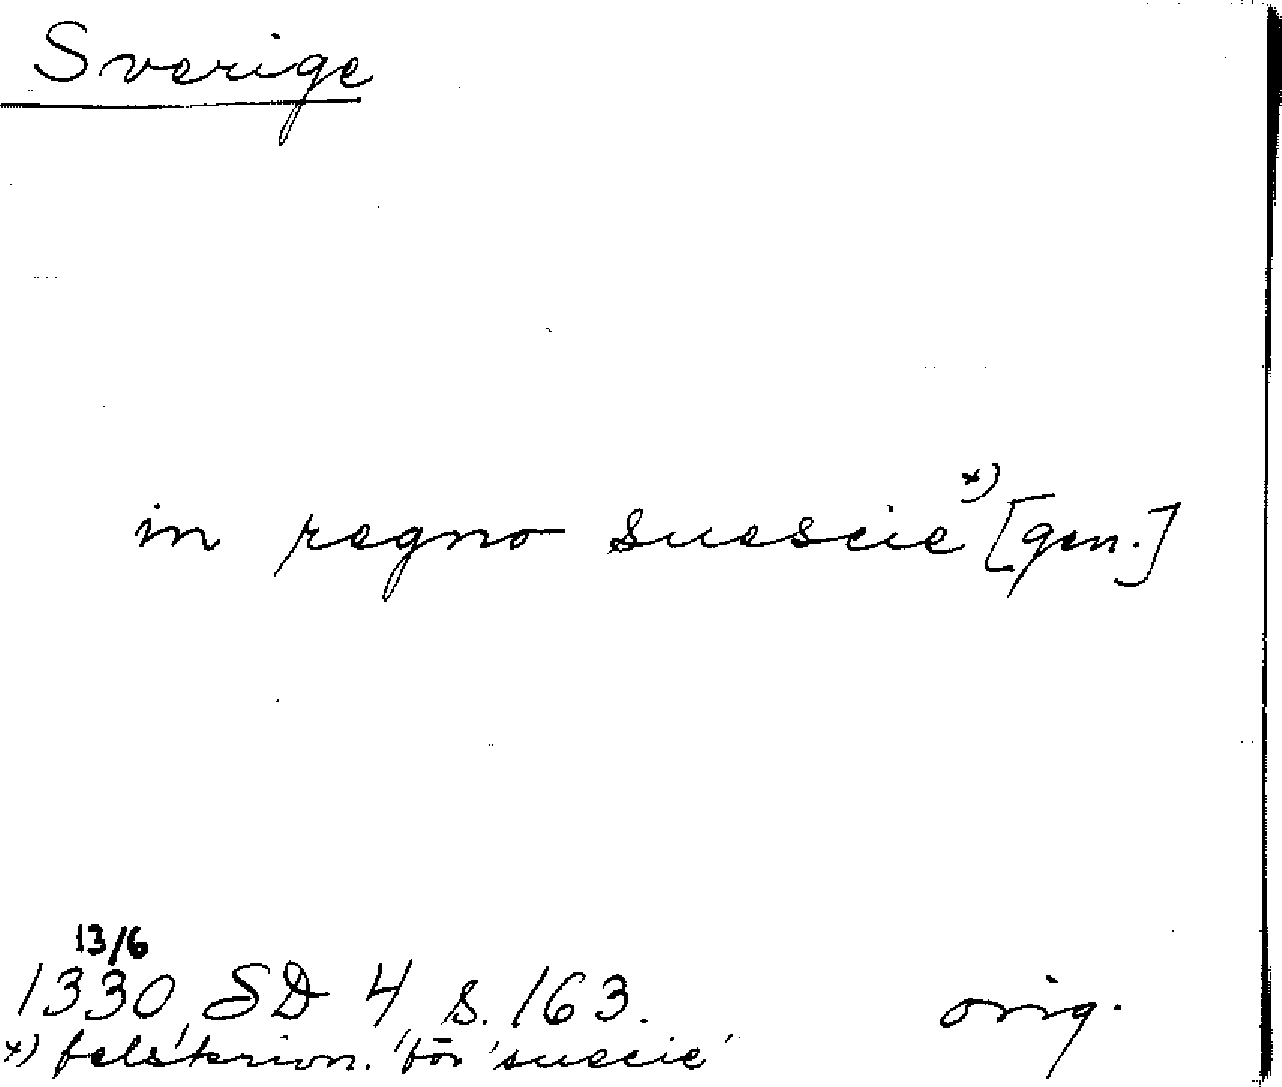 Sverige
in regno suescie x) [gen.]
13/6
1330 SD 4 s. 163. orig.
x) felskrivn. för 'suecie'